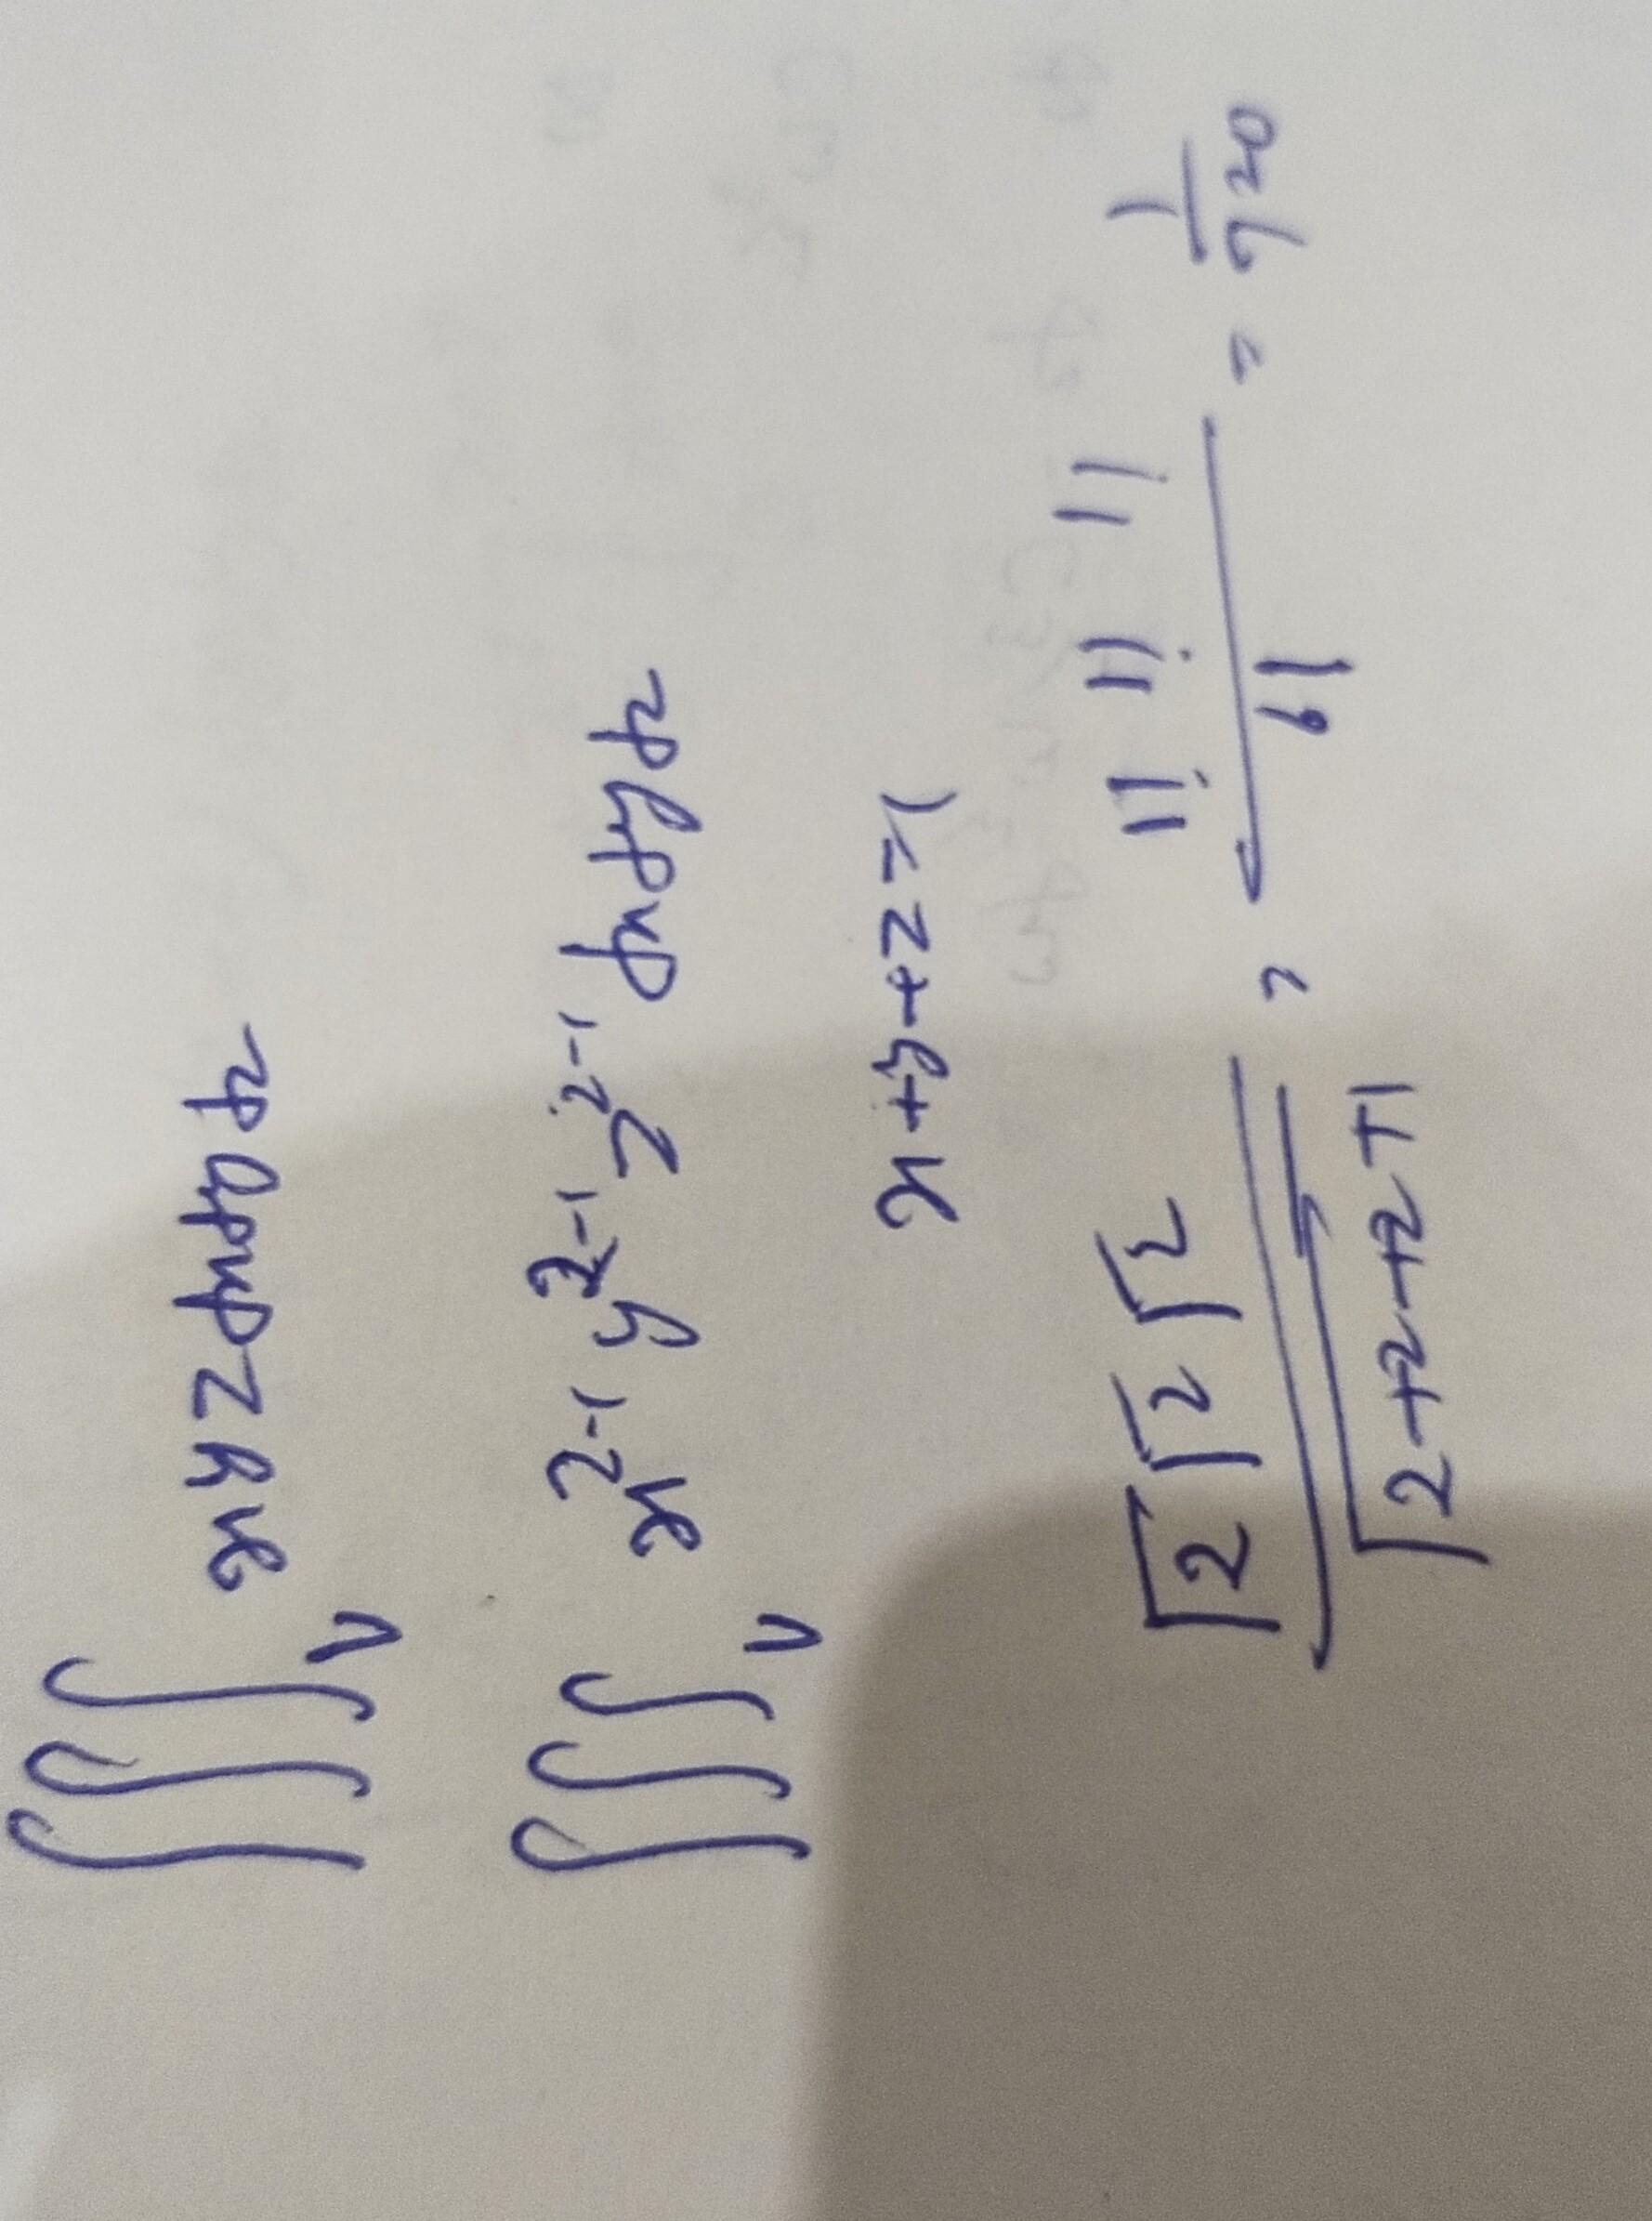 ∭_V xyz dx dy dz
∭_V x^{2-1} y^{2-1} z^{2-1} dx dy dz
x+y+z=1
(Γ2 Γ2 Γ2)/(Γ2+2+2+1) = (1! 1! 1!)/(6!) = 1/720